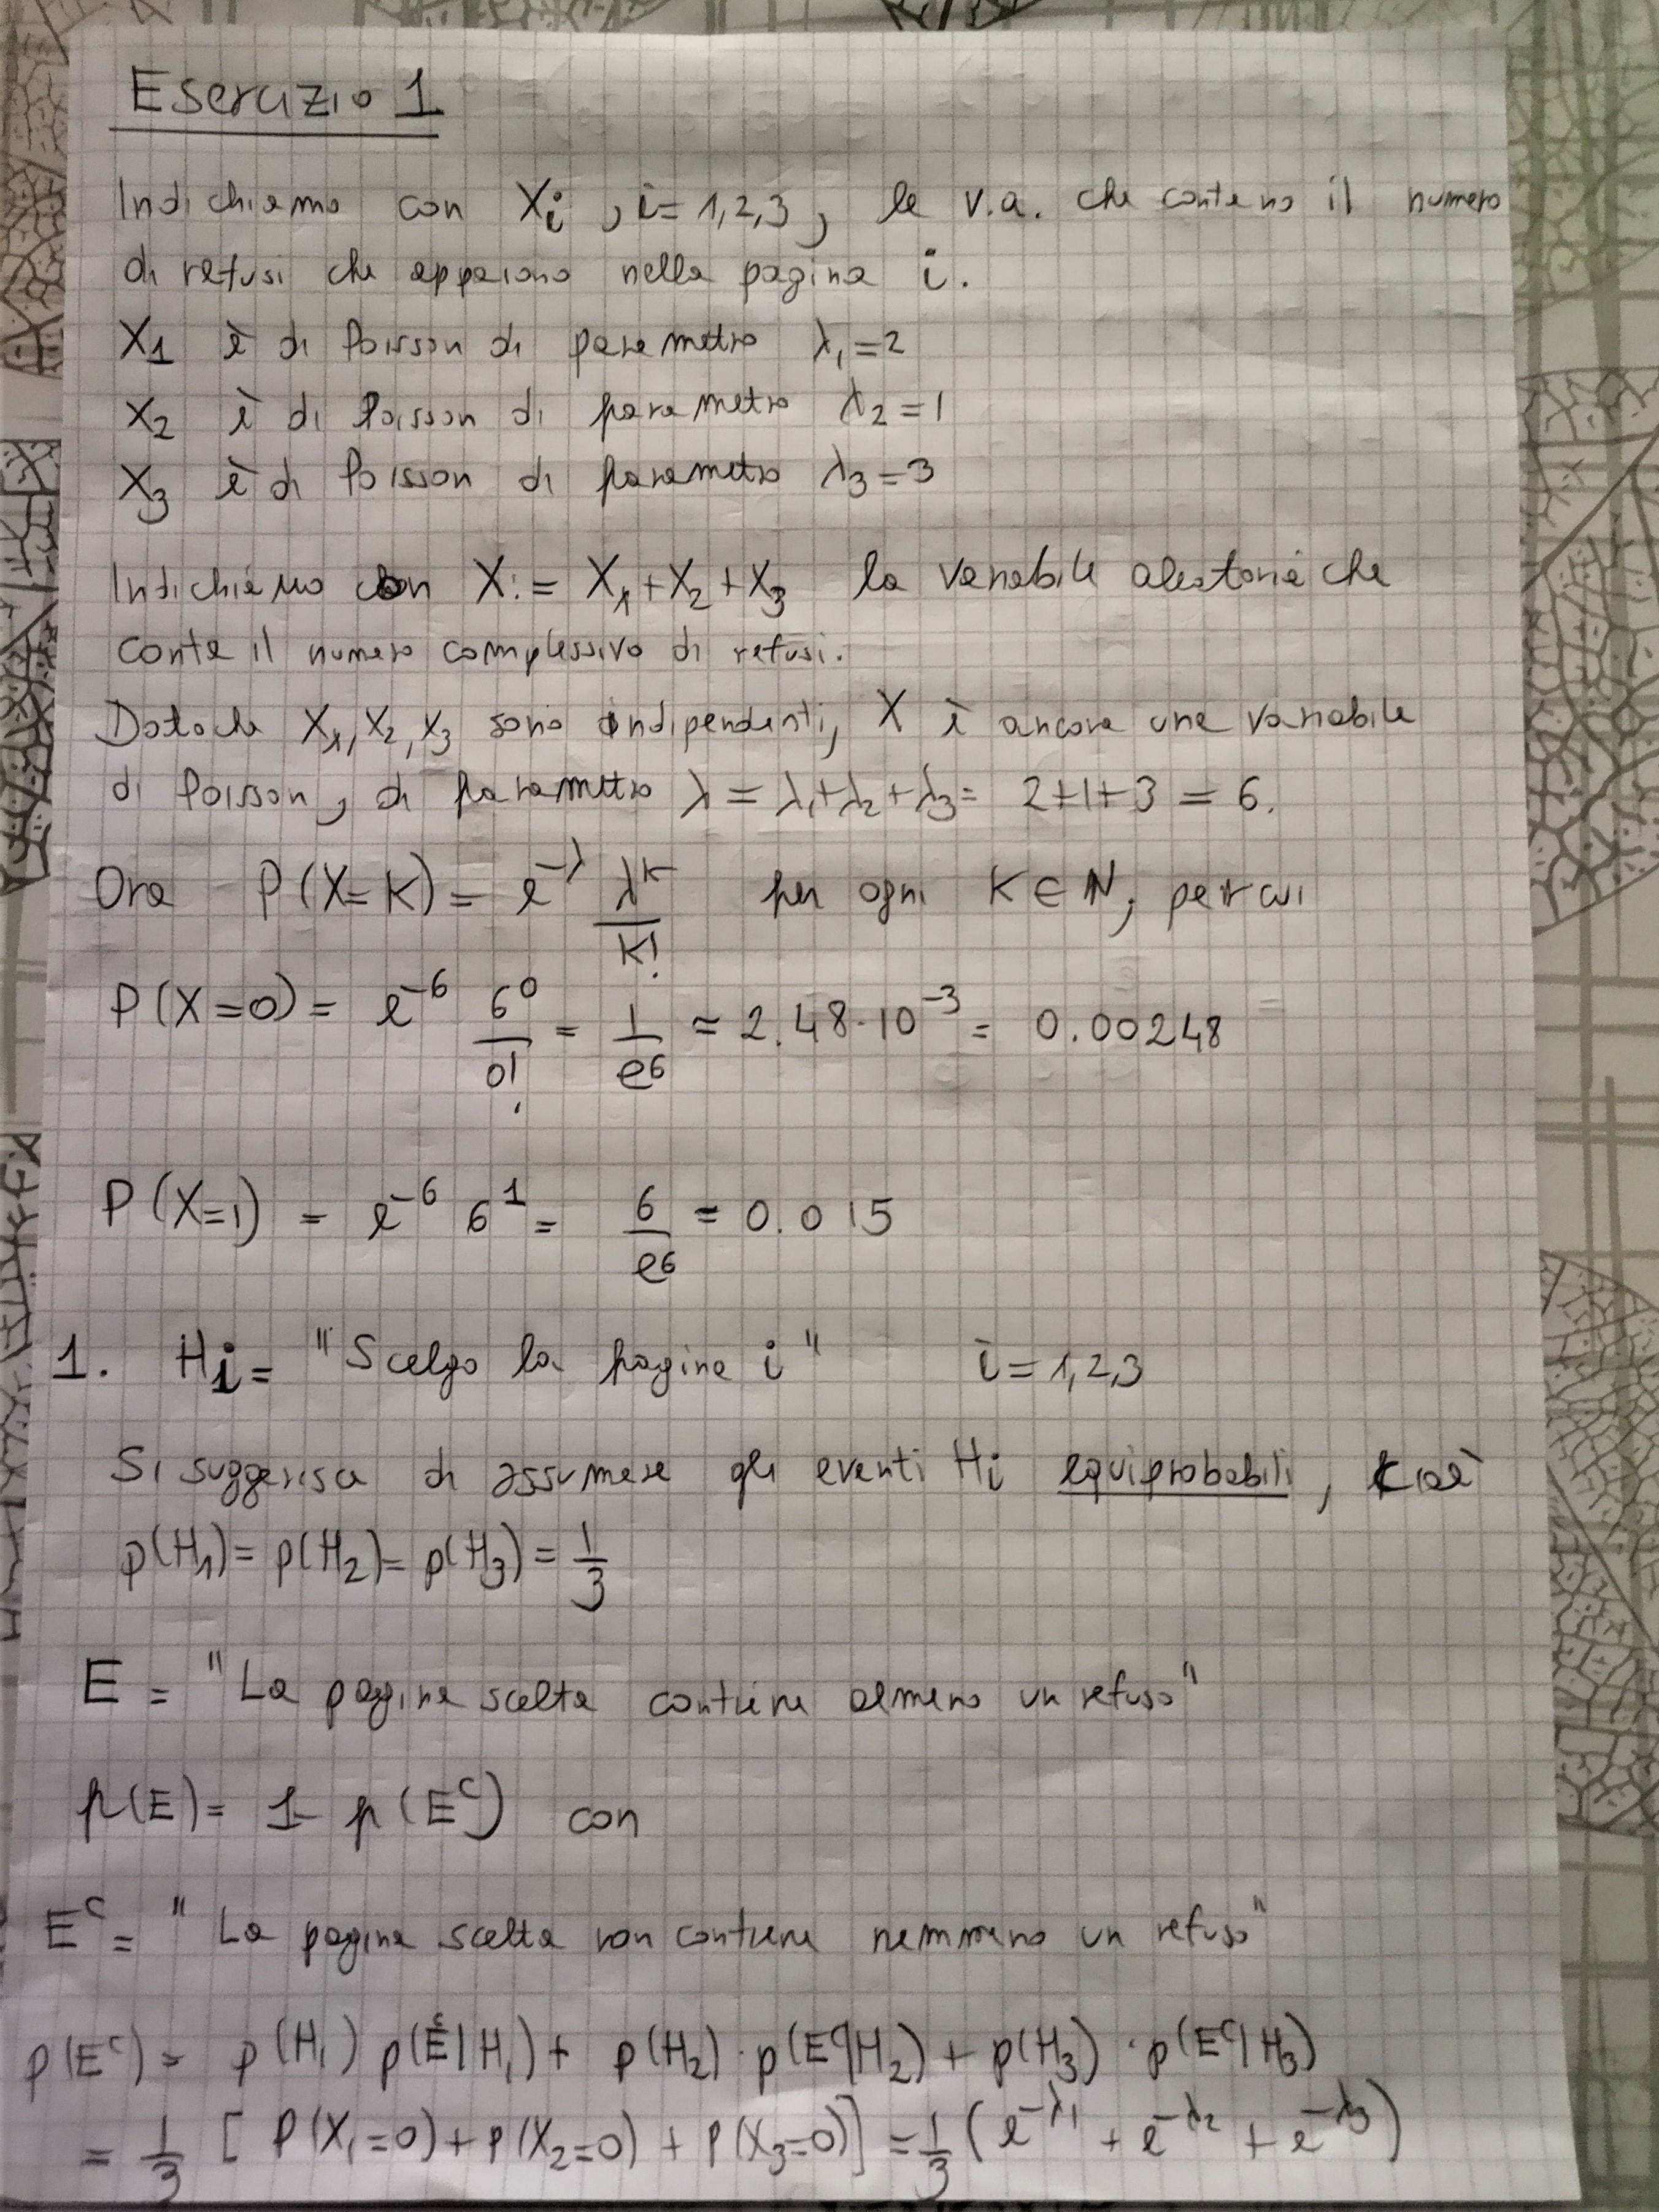 Esercizio 1
Indichiamo con Xi , i=1,2,3, le v.a. che contano il numero
di refusi che appaiono nella pagina i.
X1 è di Poisson di parametro λ1=2
X2 è di Poisson di parametro λ2=1
X3 è di Poisson di parametro λ3=3
Indichiamo con X:= X1+X2+X3 la variabile aleatoria che
conta il numero complessivo di refusi.
Dato che X1,X2,X3 sono indipendenti, X è ancora una variabile
di Poisson, di parametro λ = λ1+λ2+λ3= 2+1+3 = 6.
Ora P(X=K) = e^-λ λ^K/K! per ogni K∈N, per cui
P(X=0) = e^-6 6^0/0! = 1/e^6 ≈ 2.48·10^-3 = 0.00248
P(X=1) = e^-6 6^1 = 6/e^6 ≈ 0.015
1. Hi = "Scelgo la pagina i" i=1,2,3
Si suggerisce di assumere gli eventi Hi equiprobabili, cioè
p(H1)= p(H2)= p(H3) = 1/3
E = "La pagina scelta contiene almeno un refuso"
p(E)= 1- p(E^C) con
E^C = "La pagina scelta non contiene nemmeno un refuso"
p(E^C) = p(H1) p(E^C|H1)+ p(H2)·p(E^C|H2)+ p(H3)·p(E^C|H3)
= 1/3 [P(X1=0)+P(X2=0)+P(X3=0)] = 1/3 (e^-λ1 + e^-λ2 + e^-λ3)